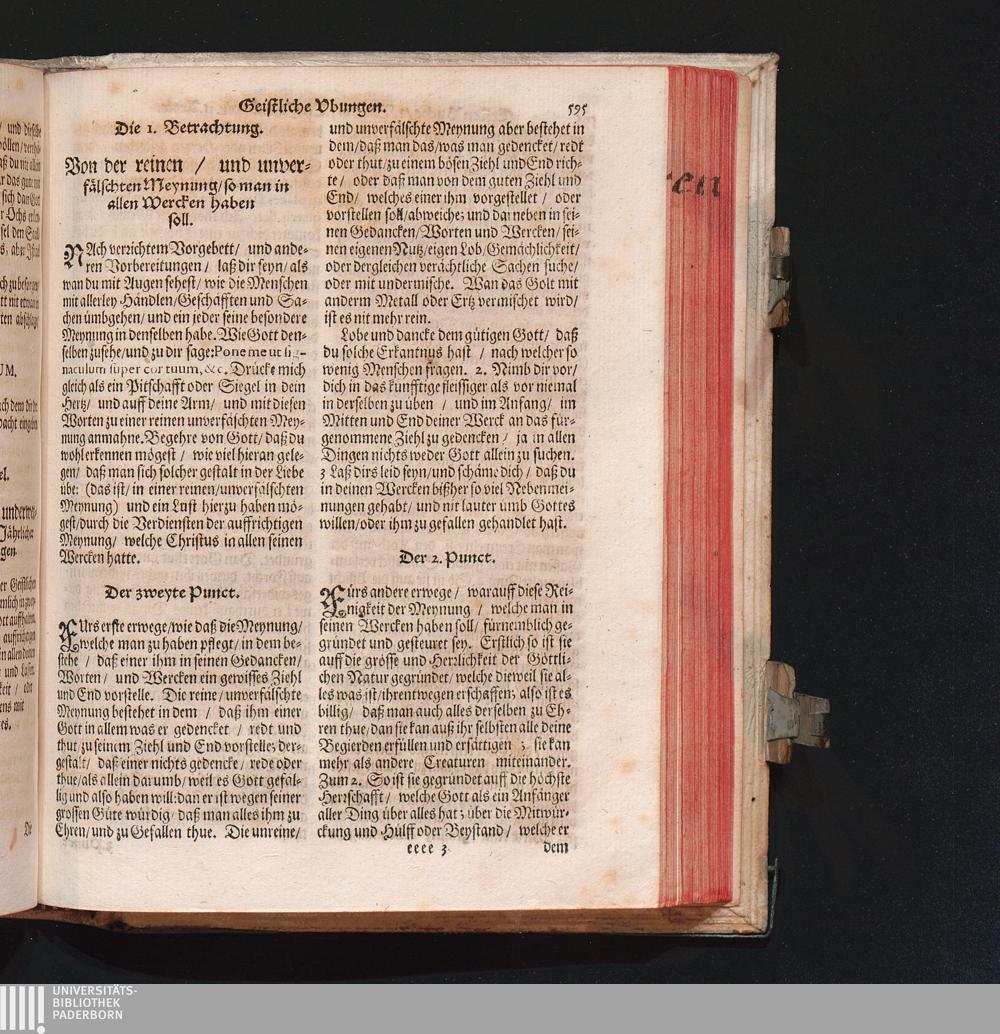 Geistliche Vbungen. 595
Die 1. Betrachtung.
Von der reinen / und unver-
fälschten Meynung / so man in
allen Wercken haben
soll.
NAch verzichtem Vorgebett / und ande-
ren Vorbereitungen / laß dir seyn / als
wan du mit Augen sehest / wie die Menschen
mit allerley Händlen / Geschäfften und Sa-
chen umbgehen / und ein jeder seine besondere
Meynung in denselben habe. Wie Gott den-
selben zusehe / und zu dir sage: Pone me ut sig-
naculum super cor tuum, &c. Drücke mich
gleich als ein Pitschafft oder Siegel in dein
Hertz / und auff deine Arm / und mit diesen
Worten zu einer reinen unverfäschten Mey-
nung anmahne. Begehre von Gott / daß du
wohl erkennen mögest / wie viel hieran gele-
gen / daß man sich solcher gestalt in der Liebe
übe: (das ist / in einer reinen / unverfälschten
Meynung) und ein Lust hierzu haben mö-
gest / durch die Verdiensten der auffrichtigen
Meynung / welche Christus in allen seinen
Wercken hatte.
Der zweyte Punct.
FUrs erste erwege / wie daß die Meynung /
welche man zu haben pflegt / in dem be-
stehe / daß einer ihm in seinen Gedancken /
Worten / und Wercken ein gewisses Ziehl
und End vorstelle. Die reine / unverfälschte
Meynung bestehet in dem / daß ihm einer
Gott in allem was er gedencket / redt und
thut zu seinem Ziehl und End vorstelle; der-
gestalt / daß einer nichts gedencke / rede oder
thue / als allein darumb / weil es Gott gefäl-
lig und also haben will: dan er ist wegen seiner
grossen Güte würdig / daß man alles ihm zu
Ehren / und zu Gefallen thue. Die unreine /
und unverfälschte Meynung aber bestehet in
dem / daß man das / was man gedencket / redt
oder thut / zu einem bösen Ziehl und End rich-
te / oder daß man von dem guten Ziehl und
End / welches einer ihm vorgestellet / oder
vorstellen soll / abweiche; und darneben in sei-
nen Gedancken / Worten und Wercken / sei-
nen eigenen Nutz / eigen Lob / Gemächlichkeit /
oder dergleichen verächtliche Sachen suche /
oder mit undermische. Wan das Golt mit
anderm Metall oder Ertz vermischet wird /
ist es nit mehr rein.
Lobe und dancke dem gütigen Gott / daß
du solche Erkantnus hast / nach welcher so
wenig Menschen fragen. 2. Nimb dir vor /
dich in das künfftige fleissiger als vor niemal
in derselben zu üben / und im Anfang / im
Mitten und End deiner Werck an das für-
genommene Ziehl zu gedencken / ja in allen
Dingen nichts weder Gott allein zu suchen.
3 Laß dirs leid seyn / und schäme dich / daß du
in deinen Wercken bißher so viel Nebenmei-
nungen gehabt / und nit lauter umb Gottes
willen / oder ihm zu gefallen gehandlet hast.
Der 2. Punct.
Fürs andere erwege / warauff diese Rei-
nigkeit der Meynung / welche man in
seinen Wercken haben soll / fürnemblich ge-
gründet und gesteuret sey. Erstlich so ist sie
auff die grösse und Herrlichkeit der Göttli-
chen Natur gegründet / welche dieweil sie al-
les was ist / ihrentwegen erschaffen; also ist es
billig / daß man auch alles derselben zu Eh-
ren thue / dan sie kan auß ihr selbsten alle deine
Begierden erfüllen und ersättigen ; sie kan
mehr als andere Creaturen miteinander.
Zum 2. So ist sie gegründet auff die höchste
Herrschafft / welche Gott als ein Anfänger
aller Ding über alles hat; über die Mitwür-
ckung und Hülff oder Beystand / welche er
eeee 3 dem
UNIVERSITÄTS-
BIBLIOTHEK
PADERBORN